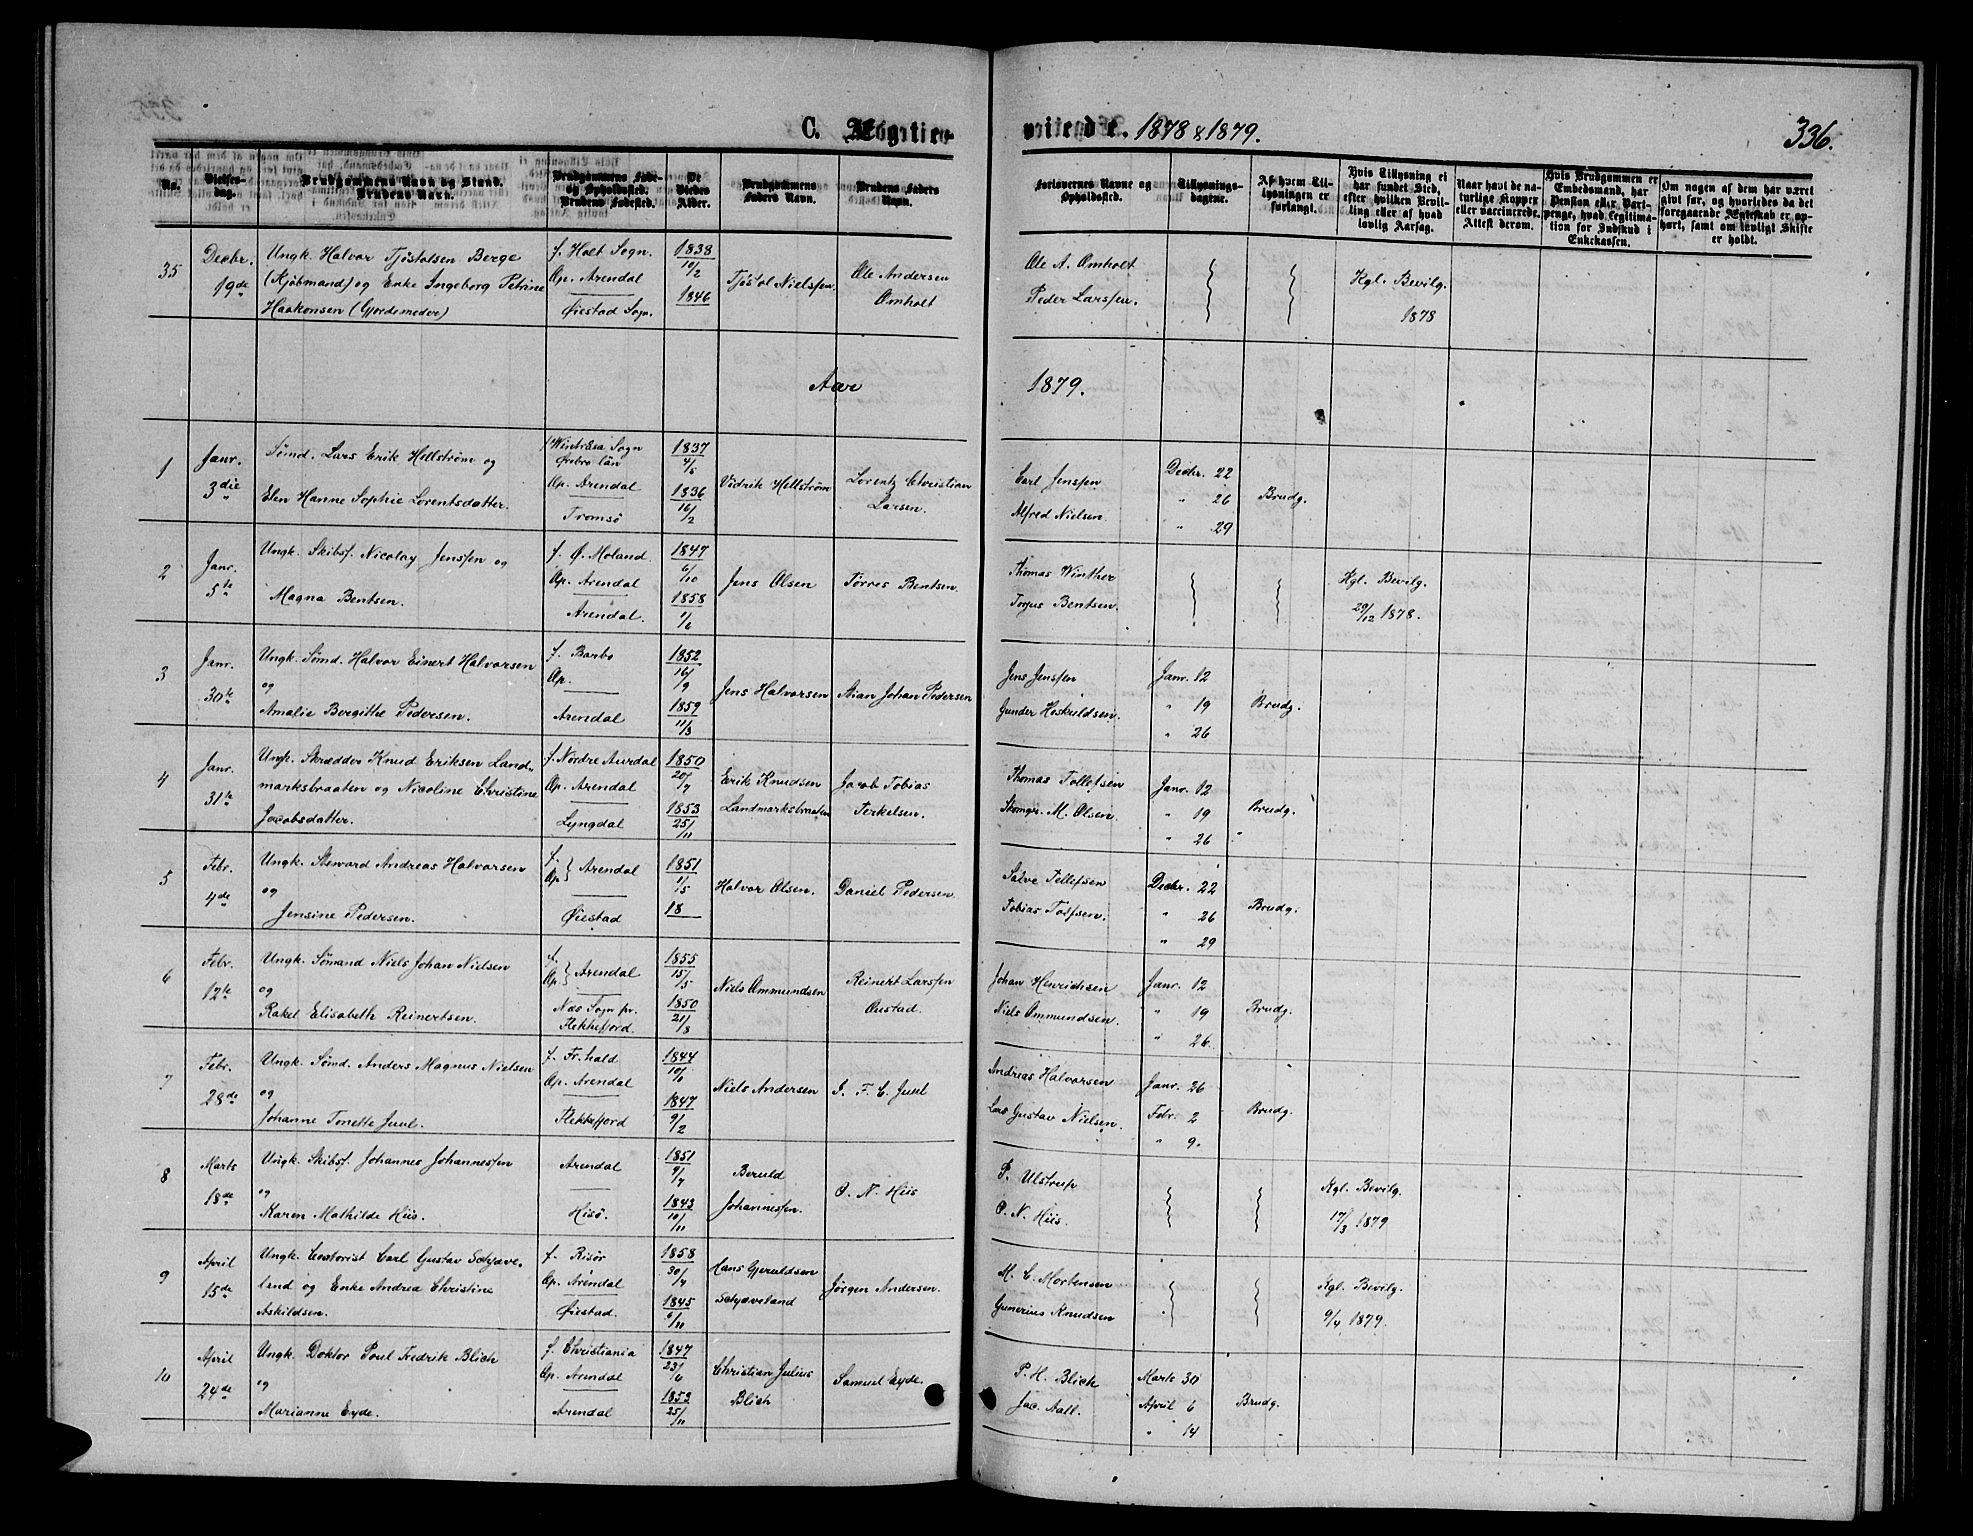 C. Ægte-
viede. 1878 & 1879.
336.
No.
Vielses-
dag.
Brudgommens Navn og Stand.
Brudens Navn.
Brudgommens Føde-
og Opholdssted.
Brudens Fødested.
De
Viedes
Alder.
Brudgommens
Faders Navn.
Brudens Faders
Navn.
Forlovernes Navne og
Opholdssted.
Tillysnings-
dagene.
Af hvem Til-
lysningen er
forlangt.
Hvis Tillysning ei
har fundet Sted,
efter hvilken Bevil-
ling eller af hvad
lovlig Aarsag.
Naar havt de na-
turlige Kopper
eller vaccinerede.
Attest derom.
Hvis Brudgommen er
Embedsmand, har
Pension eller Vart-
penge, hvad Legitima-
tion for Indskud i
Enkekassen.
Om nogen af dem har været
givt før, og hvorledes da det
foregaaende Ægteskab er op-
hørt, samt om lovligt Skifte
er holdt.
35
Decbr.
19de
Ungk. Halvor Tjøstolsen Berge
(Kjøbmand) og Enke Ingeborg Petrine
Haakonsen (Gjordemoder)
f. Holt Sogn.
Op. Arendal
Øiestad Sogn.
1838
10/2
1846
Tjøstol Nielssen
Ole Andersen
Omholt
Ole A. Omholt
Peder Larssen.
Kgl. Bevilg.
1878
Aar
1879.
1
Janr.
3die
Sømd. Lars Erik Hellstrøm og
Elen Hanne Sophie Lorentsdatter.
f. Wintråsa Sogn
Ørebro län
Op. Arendal
Tromsø
1837
4/5
1836
16/2
Vidrik Hellstrøm
Lorentz Christian
Larsen.
Carl Jenssen
Alfred Nielsen.
Decbr. 22
" 26
" 29
Brudg.
2
Janr.
5te
Ungk. Skibsf. Nicolay Jenssen og
Magna Bentsen.
f. Ø. Moland.
Op. Arendal
Arendal.
1847
6/10
1858
1/6
Jens Olsen
Tørres Bentsen.
Thomas Winther
Torjus Bentsen.
Kgl. Bevilg.
29/12 1878.
3
Janr.
30te
Ungk. Sømd. Halvor Einert Halvorsen
og
Amalie Bergitthe Pedersen.
f. Barbo
Op.
Arendal
1852
16/9
1859
11/3
Jens Halvorsen
Stian Johan Pedersen
Jens Jenssen
Gunder Høskuldsen.
Janr. 12
" 19
" 26
Brudg.
4
Janr.
31te
Ungk. Skrædder Knud Eriksen Land-
marksbraaten og Nicoline Christine
Jacobsdatter.
f. Nordre Aurdal
Op. Arendal
Lyngdal
1850
20/7
1853
25/11
Erik Knudsen
Landmarksbraaten
Jacob Tobias
Terkelsen.
Thomas Tollefsen
Stenogr. M. Olsen.
Janr. 12
" 19
" 26
Brudg.
5
Febr.
4de
Ungk. Steward Andreas Halvorsen
og
Jensine Pedersen.
f.
Op. } Arendal
Øiestad
1851
1/5
18
Halvor Olsen.
Daniel Pedersen.
Salve Tellefsen
Tobias Tolfsen.
Decbr. 22
" 26
" 29
Brudg.
6
Febr.
12te
Ungk. Sømand Niels Johan Nielsen
og
Rakel Elisabeth Reinertsen.
f.
Op. } Arendal
Næs Sogn pr.
Flekkefjord.
1855
15/5
1850
21/8
Niels Ommundsen
Reinert Larssen
Oustad.
Johan Henrichsen
Niels Ommundsen.
Janr. 12
" 19
" 26.
Brudg.
7
Febr.
28de
Ungk. Sømd. Anders Magnus Nielsen
og
Johanne Tonette Juul.
f. Fr.hald
Op. Arendal
Flekkefjord
1844
10/6
1847
9/2
Niels Andersen
J. F. C. Juul
Andreas Halvorsen
Lars Gustav Nielsen.
Janr. 26
Febr. 2
" 9.
Brudg.
8
Marts
18de
Ungk. Skibsf. Johannes Johannessen
og
Karen Mathilde Hiis.
Arendal
Hisø.
1851
9/7
1843
10/11
Beruld
Johannessen.
O. N. Hiis
P. Ulstrup
O. N. Hiis.
Kgl. Bevilg.
17/3 1879
9
April
15de
Ungk. Contorist Carl Gustav Schjave-
land og Enke Andrea Christine
Askildsen.
f. Risør
Op. Arendal
Øiestad.
1858
30/7
1845
6/11
Hans Gjeruldsen
Schjaveland
Jørgen Andersen.
M. C. Mortensen
Gunerius Knudsen
Kgl. Bevilg.
9/4 1879.
10
April
24de
Ungk. Doktor Poul Fredrik Blich
og
Marianne Eyde.
f. Christiania
Op. Arendal
Arendal
1847
23/6
1853
25/11
Christian Julius
Blich
Samuel Eyde.
P. H. Blich
Jac. Aall.
Marts 30
April 6
" 14
Brudg.